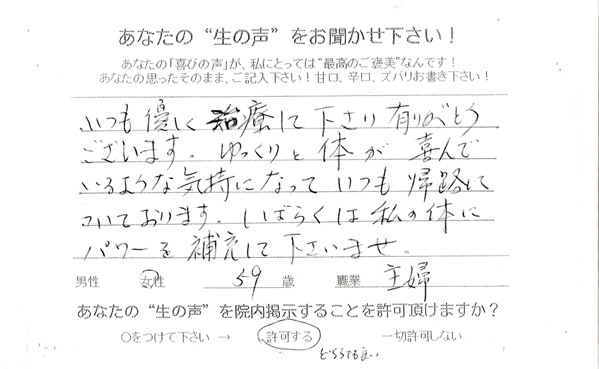 あなたの“生の声”をお聞かせ下さい！
あなたの「喜びの声」が、私にとっては“最高のご褒美”なんです！
あなたの思ったそのまま、ご記入下さい！甘口、辛口、ズバリお書き下さい！
いつも優しく治療して下さり有りがとう
ございます。ゆっくりと体が喜んで
いるような気持になっていつも帰路に
ついております。しばらくは私の体に
パワーを補充して下さいませ。
男性 女性 59 歳 職業 主婦
あなたの“生の声”を院内掲示することを許可頂けますか？
〇をつけて下さい → 許可する 一切許可しない
どちらでも良い